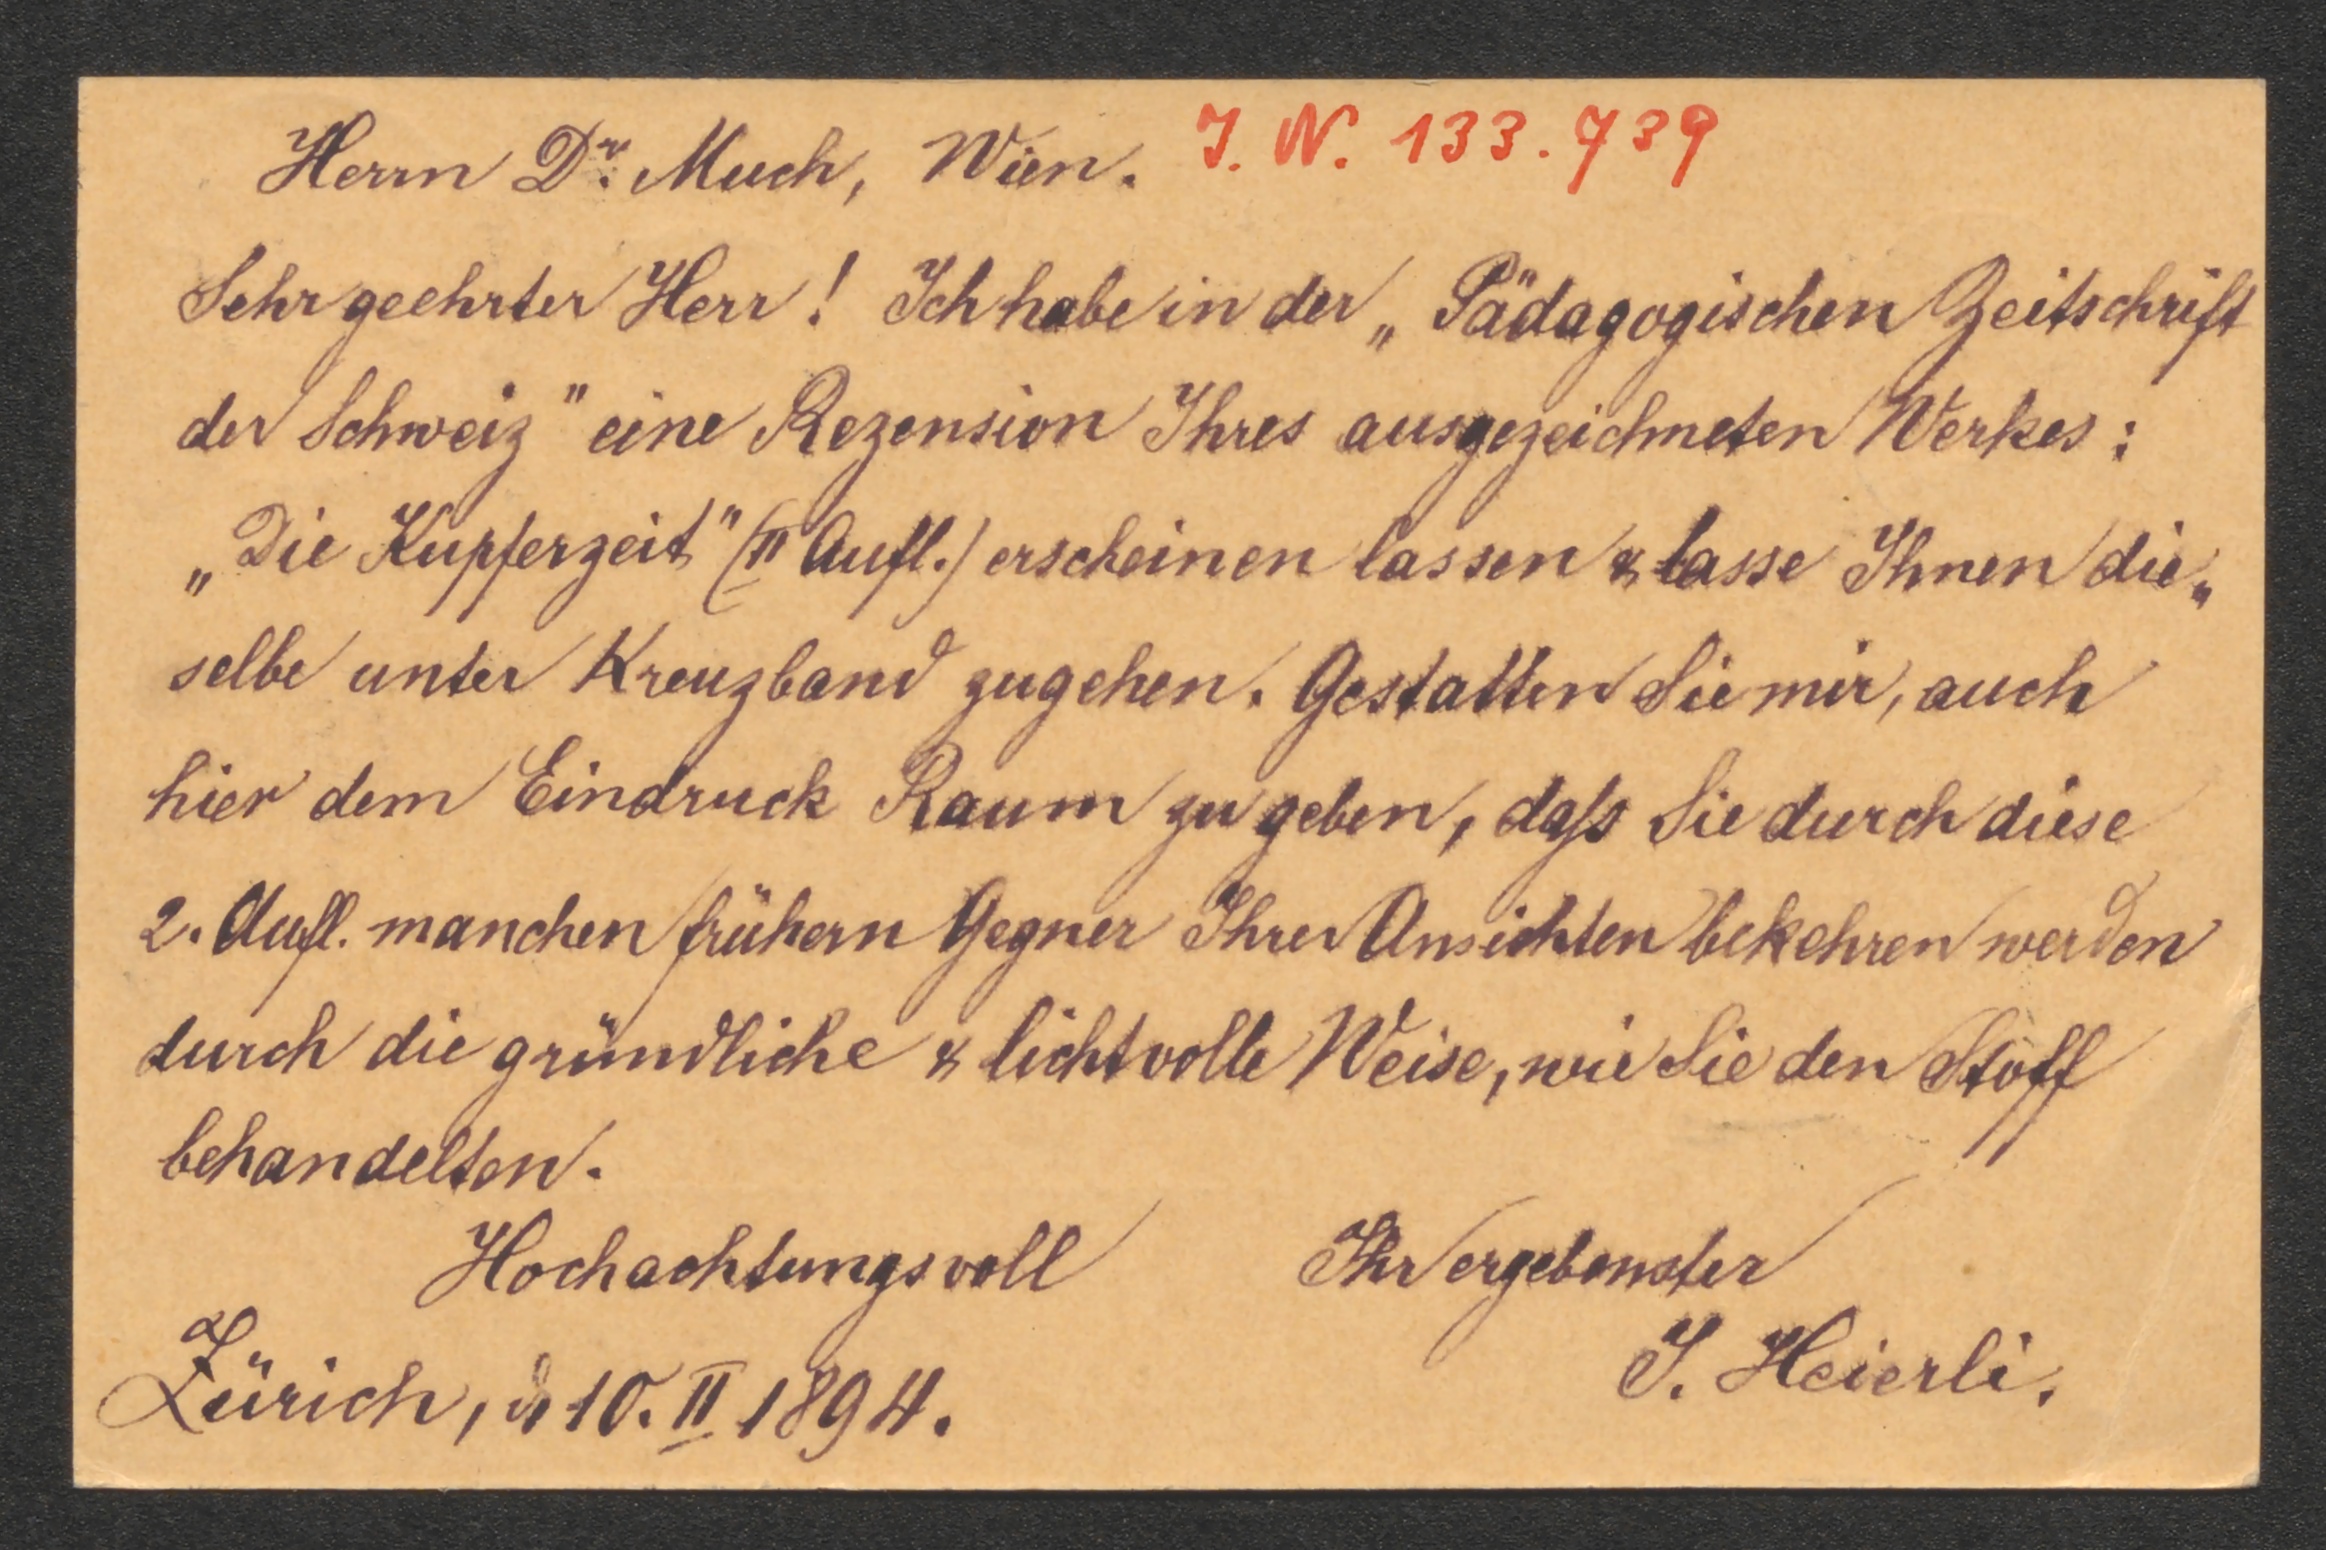 Herrn Dr. Much, Wien. J. N. 133.739
Sehr geehrter Herr! Ich habe in der „Pädagogischen Zeitschrift
der Schweiz" eine Rezension Ihres ausgezeichneten Werkes:
„Die Kupferzeit" (II Aufl.) erscheinen lassen & lasse Ihnen die„
selbe unter Kreuzband zugehen. Gestatten Sie mir, auch
hier dem Eindruck Raum zu geben, dass Sie durch diese
2. Aufl. manchen frühern Gegner Ihrer Ansichten bekehren werden
durch die gründliche & lichtvolle Weise, wie Sie den Stoff
behandelten.
Hochachtungsvoll Ihr ergebenster
J. Heierli.
Zürich, d 10. II 1894.